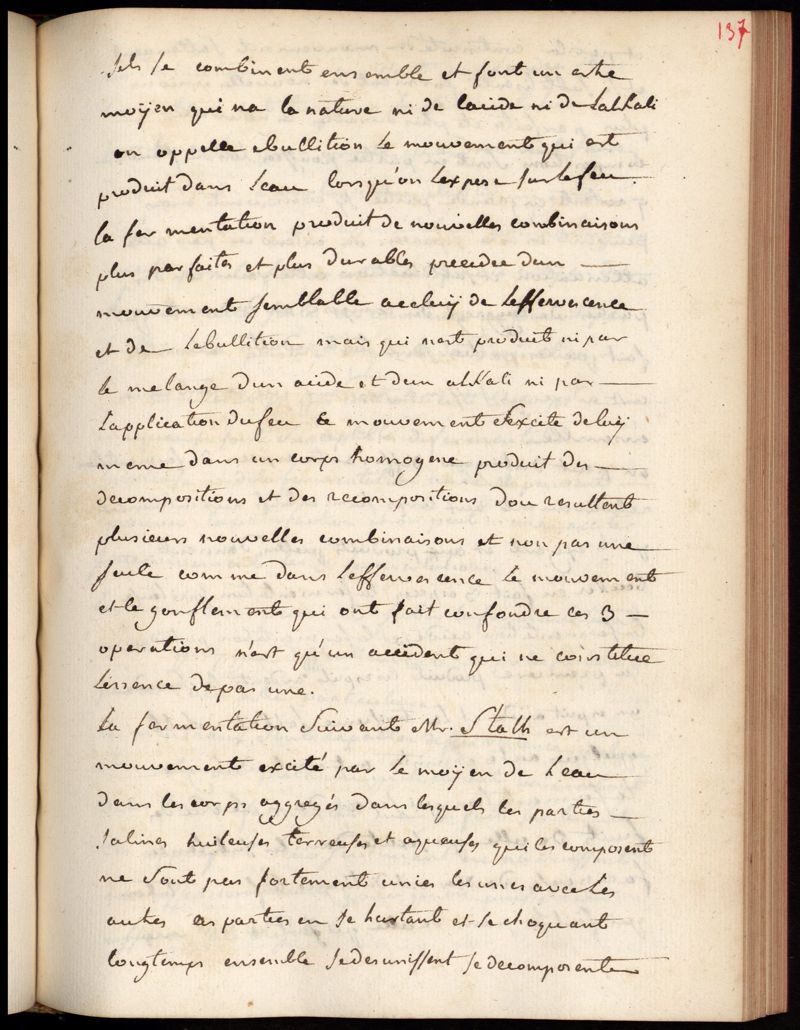 137
sels se combinent ensemble et font un estre
moÿen qui na la nature ni de lacide ni de Lalkali
on appelle ebullition Le mouvement qui est
produit dans Leau lorsqu'on Lexpose sur le feu.
la fermentation produit de nouvelles combinaisons
plus parfaites et plus durables precedée dun —
mouvement semblable a celuÿ de Leffervescence
et de Lebullition mais qui nest produit ni par
le melange dun acide et dun alkali ni par —
Lapplication du feu Ce mouvement s'excite de luÿ
meme dans un corps homogene produit des —
decompositions et des recompositions dou resultent
plusieurs nouvelles combinaisons et non pas une
seule comme dans Leffervescence Le mouvement
et le gonflement qui ont fait confondre ces 3 —
operations n'est qu'un accident qui ne constitue
Lessence de pas une.
La fermentation Suivant Mr. Stalh est un
mouvement excité par Le moÿen de Leau
dans les corps aggregés dans lesquels les parties —
salines huileuses terreuses et aqueuses qui les composent
ne Sont pas fortement unies les unes avec Les
autres ces parties en se hurtant et se choquant
longtemps ensemble se desunissent se decomposent